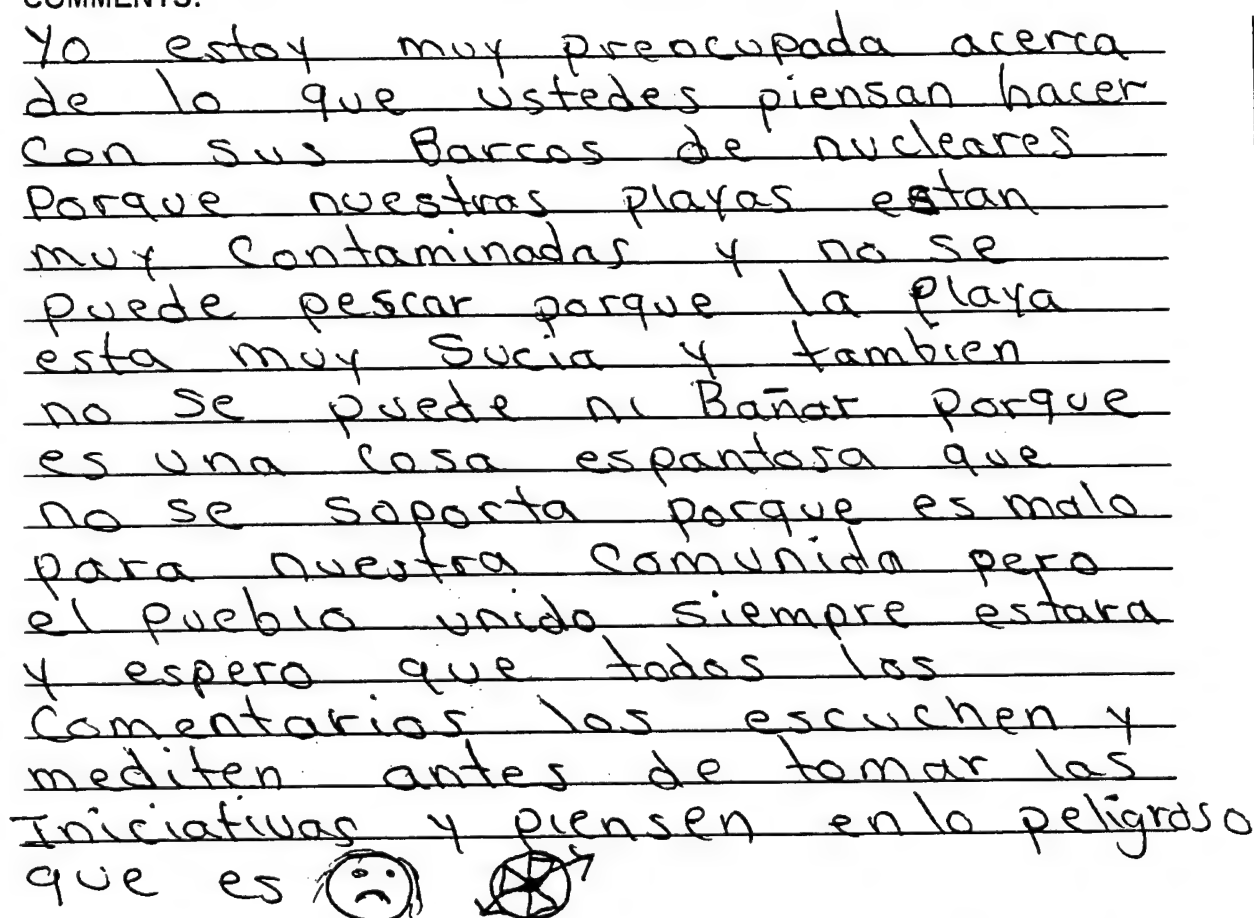 COMMENTS:
Yo estoy muy preocupada acerca
de lo que ustedes piensan hacer
Con sus Barcos de nucleares
Porque nuestras playas estan
muy Contaminadas y no se
puede pescar porque la playa
esta muy Sucia y tambien
no se puede ni Bañar porque
es una cosa espantosa que
no se soporta porque es malo
para nuestra comunida pero
el pueblo unido siempre estara
y espero que todos los
Comentarios los escuchen y
mediten antes de tomar las
Iniciativas y piensen en lo peligroso
que es